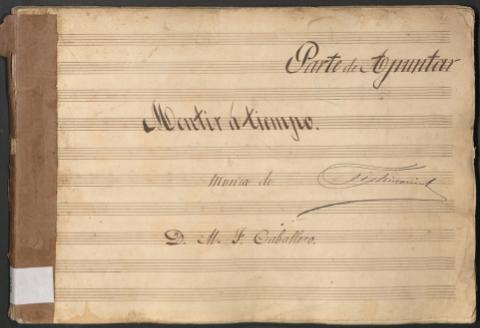 Parte de Apuntar
Mentir á tiempo.
Musica de
D. M. F. Caballero.